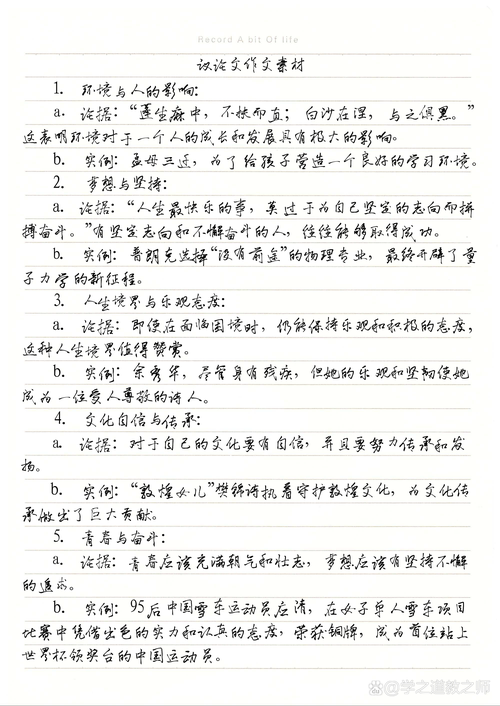 Record A bit Of life
议论文作文素材
1. 环境与人的影响:
a. 论据:“蓬生麻中,不扶而直;白沙在涅,与之俱黑。”
这表明环境对于一个人的成长和发展具有极大的影响。
b. 实例:孟母三迁,为了给孩子营造一个良好的学习环境。
2. 梦想与坚持:
a. 论据:“人生最快乐的事,莫过于为自己坚定的志向而拼
搏奋斗。”有坚定志向和不懈奋斗的人,往往能够取得成功。
b. 实例:普朗克选择“没有前途”的物理专业,最终开辟了量
子力学的新征程。
3. 人生境界与乐观态度:
a. 论据:即使在面临困境时,仍能保持乐观和积极的态度,
这种人生境界值得赞赏。
b. 实例:余秀华,尽管身有残疾,但她的乐观和坚韧使她
成为一位受人尊敬的诗人。
4. 文化自信与传承:
a. 论据:对于自己的文化要有自信,并且要努力传承和发
扬。
b. 实例:“敦煌女儿”樊锦诗执着守护敦煌文化,为文化传
承做出了巨大贡献。
5. 青春与奋斗:
a. 论据:青春应该充满朝气和壮志,梦想应该有坚持不懈
的追求。
b. 实例:95后中国雪车运动员应清,在女子单人雪车项目
比赛中凭借出色的实力和认真的态度,荣获铜牌,成为首位站上
世界杯领奖台的中国运动员。
学之道教之师